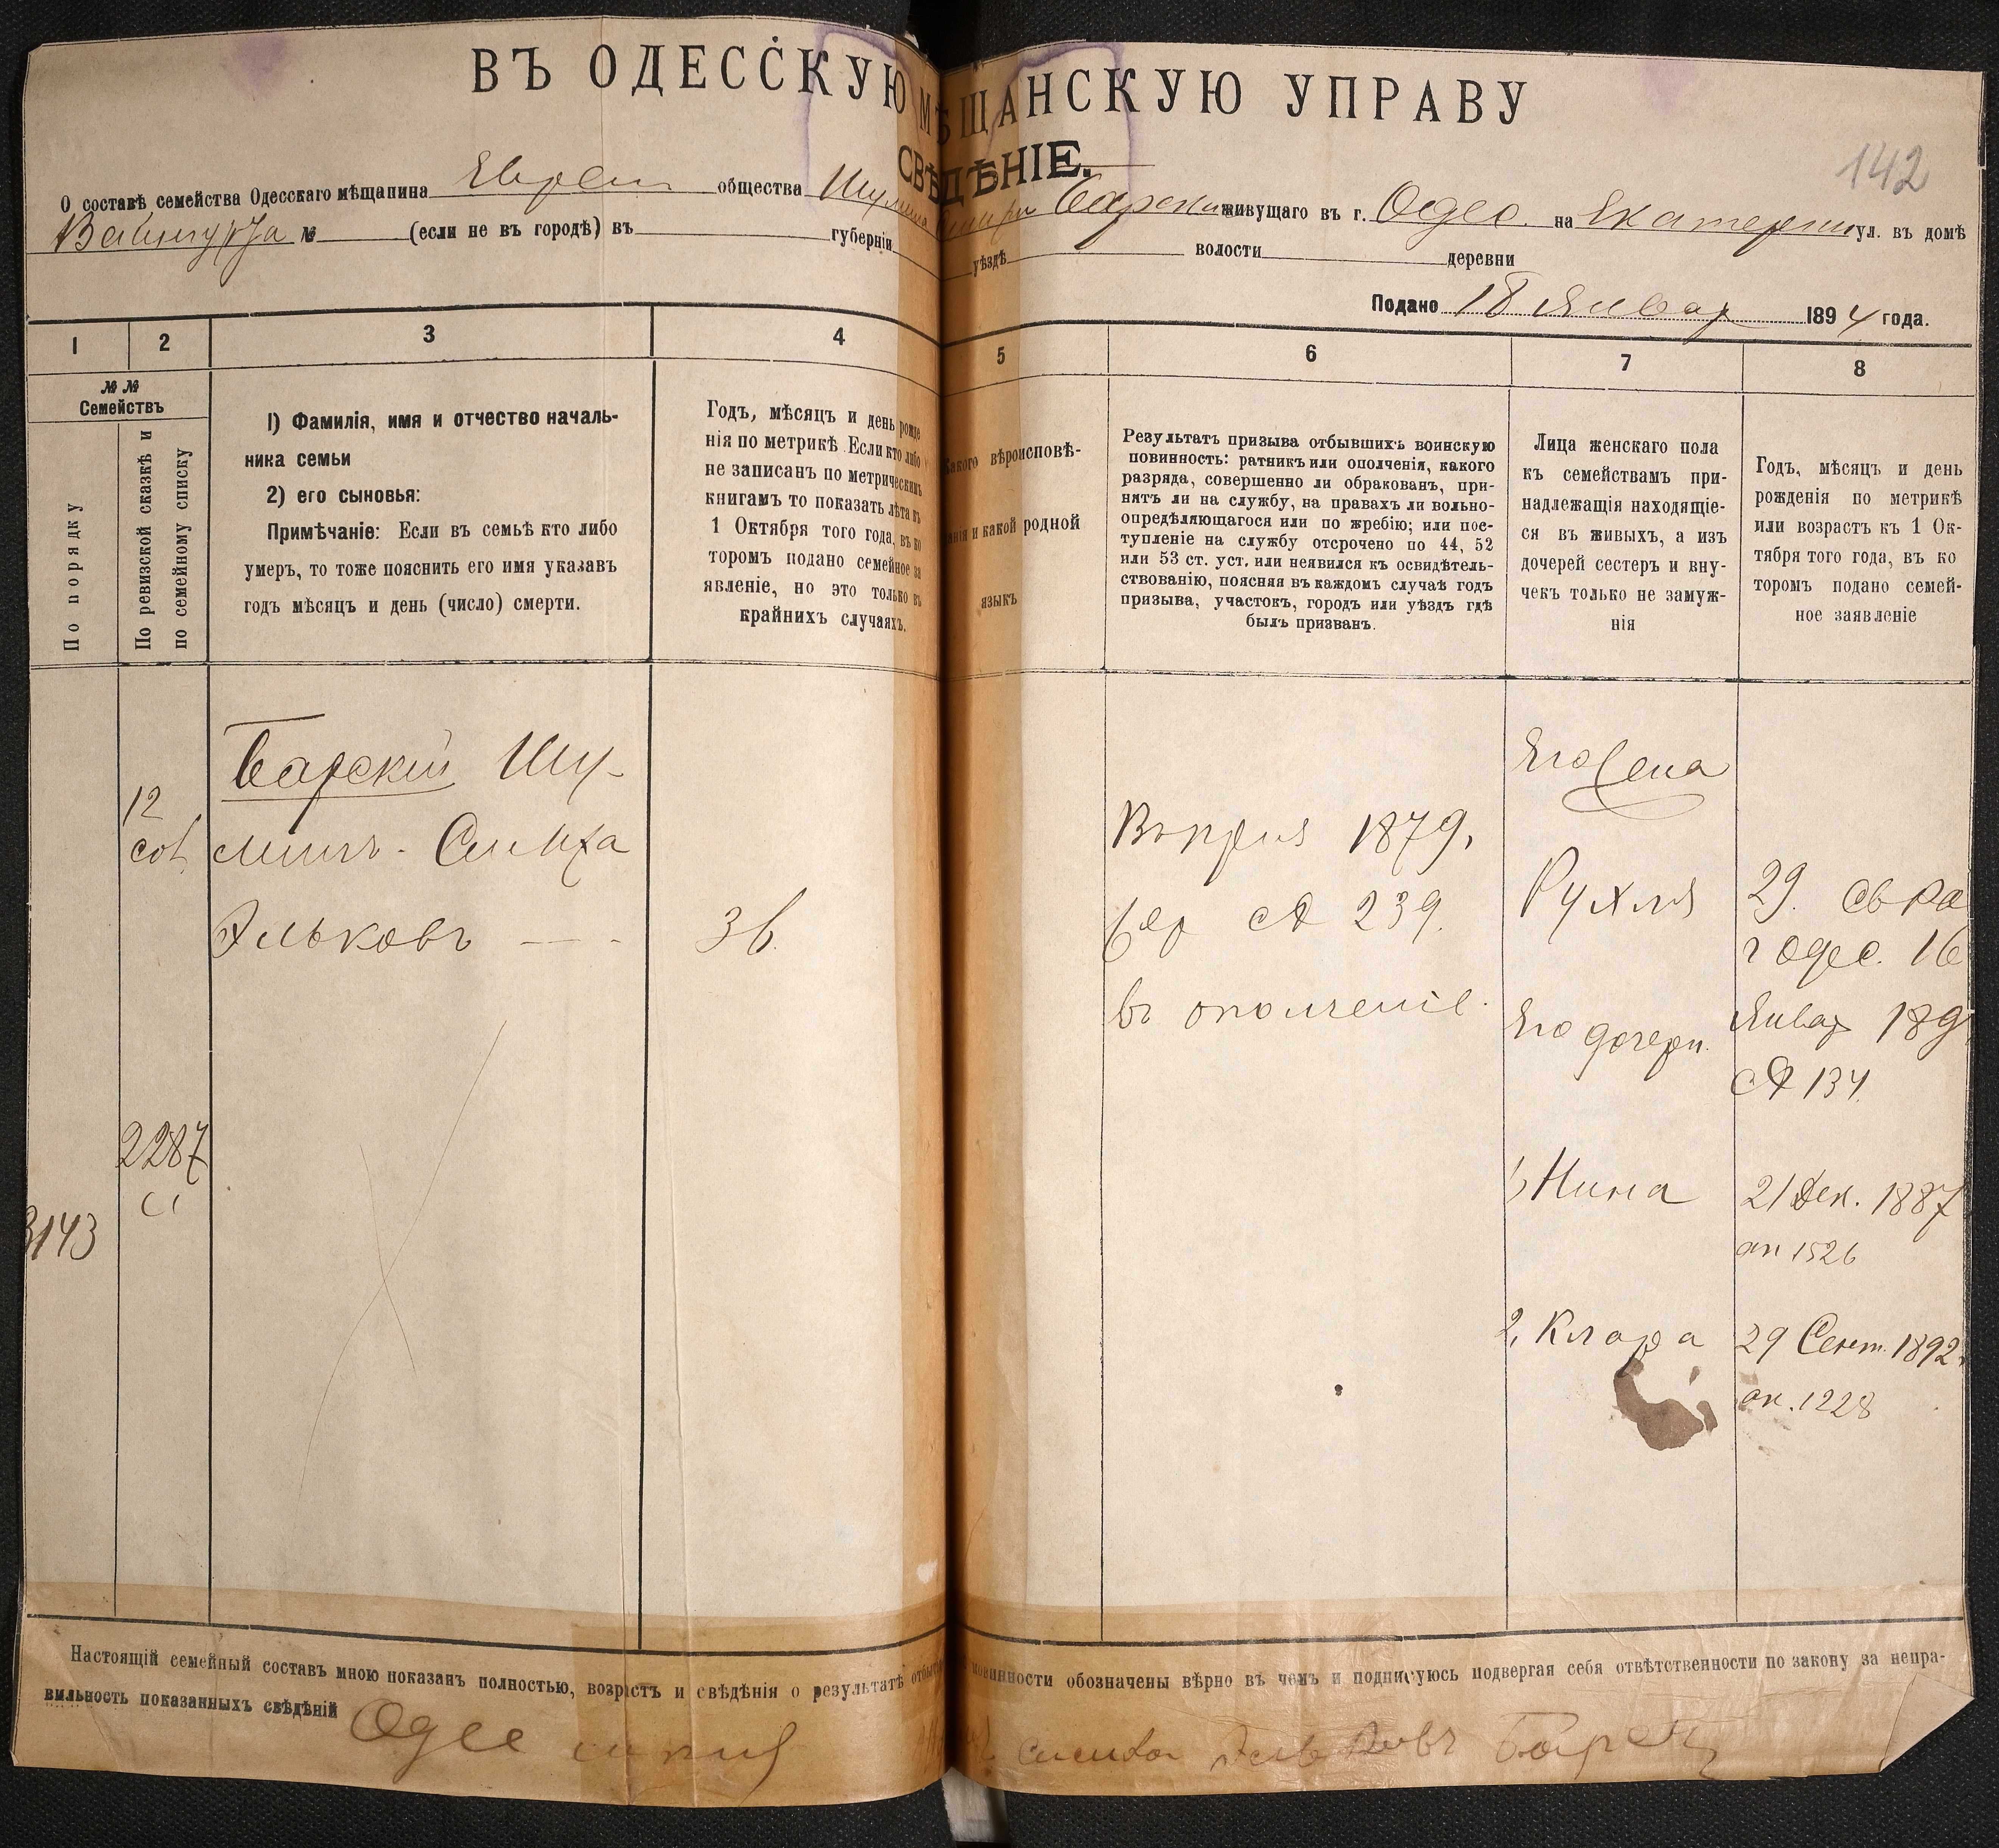 ВЪ ОДЕССКУЮ МѢЩАНСКУЮ УПРАВУ
СВѢДѢНІЕ.
142
О составѣ семейства Одесскаго мѣщанина Евреи общества Барски живущаго въ г. Одес. на Екатерин ул. въ домѣ
№ (если не въ городѣ) въ губерніи уѣздѣ волости деревни
Подано 18 Январ 1894 года.
1 2 3 4 5 6 7 8
№№ Семействъ
По порядку
По ревизской сказкѣ и
по семейному списку
1) Фамилія, имя и отчество началь-
ника семьи
2) его сыновья:
Примѣчаніе: Если въ семьѣ кто либо
умеръ, то тоже пояснить его имя указавъ
годъ мѣсяцъ и день (число) смерти.
Годъ, мѣсяцъ и день рожде
нія по метрикѣ Если кто либо
не записанъ по метрическимъ
книгамъ то показать лѣта къ
1 Октября того года, въ ко
торомъ подано семейное за
явленіе, но это только въ
крайнихъ случаяхъ.
Какого вѣроисповѣ-
данія и какой родной
языкъ
Результатъ призыва отбывшихъ воинскую
повинность: ратникъ или ополченія, какого
разряда, совершенно ли обракованъ, при-
нятъ ли на службу, на правахъ ли вольно-
опредѣляющагося или по жребію; или пос-
тупленіе на службу отсрочено по 44, 52
или 53 ст. уст. или неявился къ освидѣтель-
ствованію, поясняя въ каждомъ случаѣ годъ
призыва, участокъ, городъ или уѣздъ гдѣ
былъ призванъ.
Лица женскаго пола
къ семействамъ при-
надлежащія находящіе-
ся въ живыхъ, а изъ
дочерей сестеръ и вну-
чекъ только не замуж-
нія
Годъ, мѣсяцъ и день
рожденія по метрикѣ
или возрастъ къ 1 Ок-
тября того года, въ ко
торомъ подано семей-
ное заявленіе
12
Барскій Шу-
лимъ - Симха
Эльковъ
36.
2287
3143
1879,
239.
въ ополченіе.
Его жена
Рухля
29.
г Одес. 16
Январ 189
№ 134.
Его дочери.
1, Нина
21 Дек. 1887
ак 1526
2, Клара
29 Сент. 1892
ак. 1228
Настоящій семейный составъ мною показанъ полностью, возрастъ и свѣдѣнія о результатѣ отбытія повинности обозначены вѣрно въ чемъ и подписуюсь подвергая себя отвѣтственности по закону за непра-
вильность показанныхъ свѣдѣній Одес Симха Эльковъ